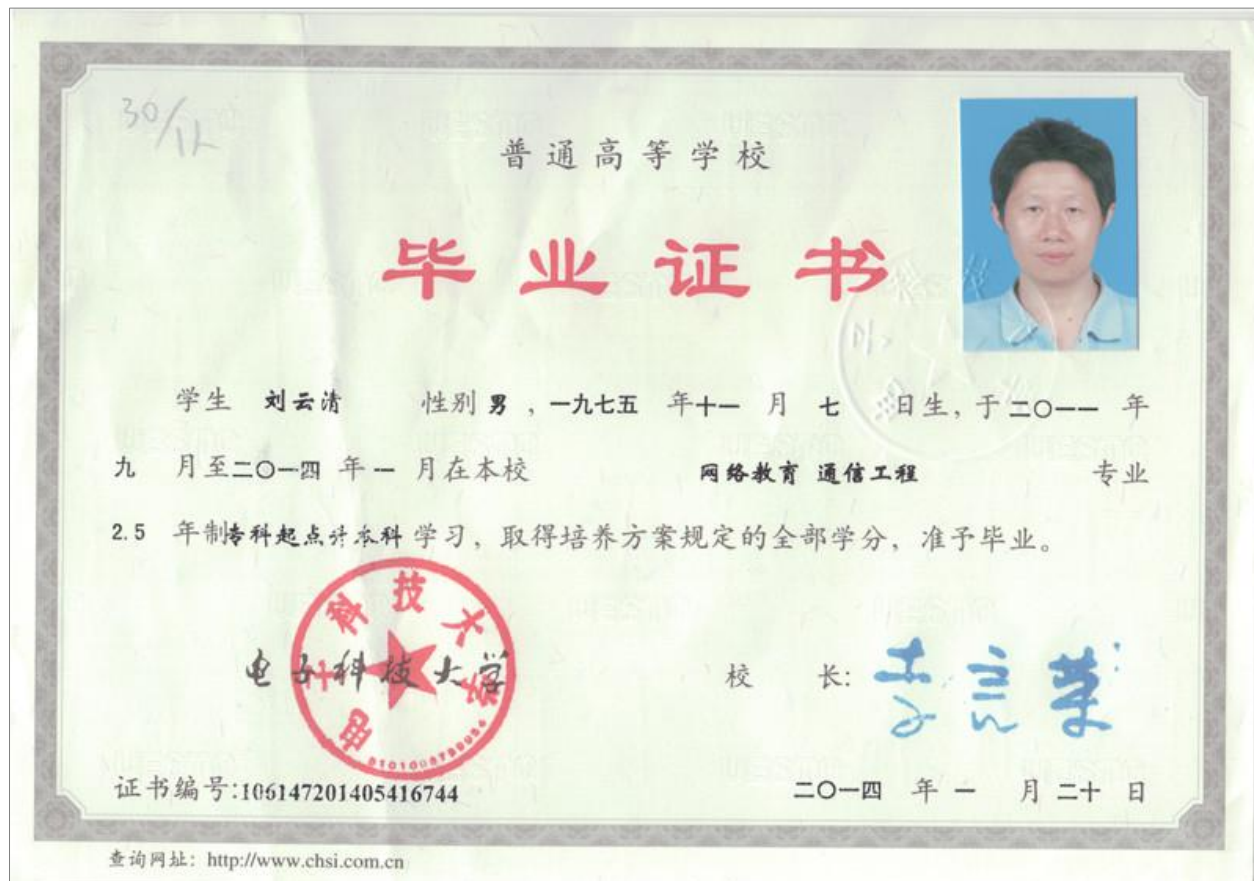 30/12
普通高等学校
毕业证书
学生 刘云清 性别 男 ，一九七五 年十一 月 七 日生，于 二〇一一 年
九 月至二〇一四 年 一 月在本校 网络教育 通信工程 专业
2.5 年制专科起点升本科 学习，取得培养方案规定的全部学分，准予毕业。
电子科技大学
电子科技大学
校 长：李言荣
证书编号:106147201405416744
二〇一四 年 一 月 二十 日
查询网址：http://www.chsi.com.cn